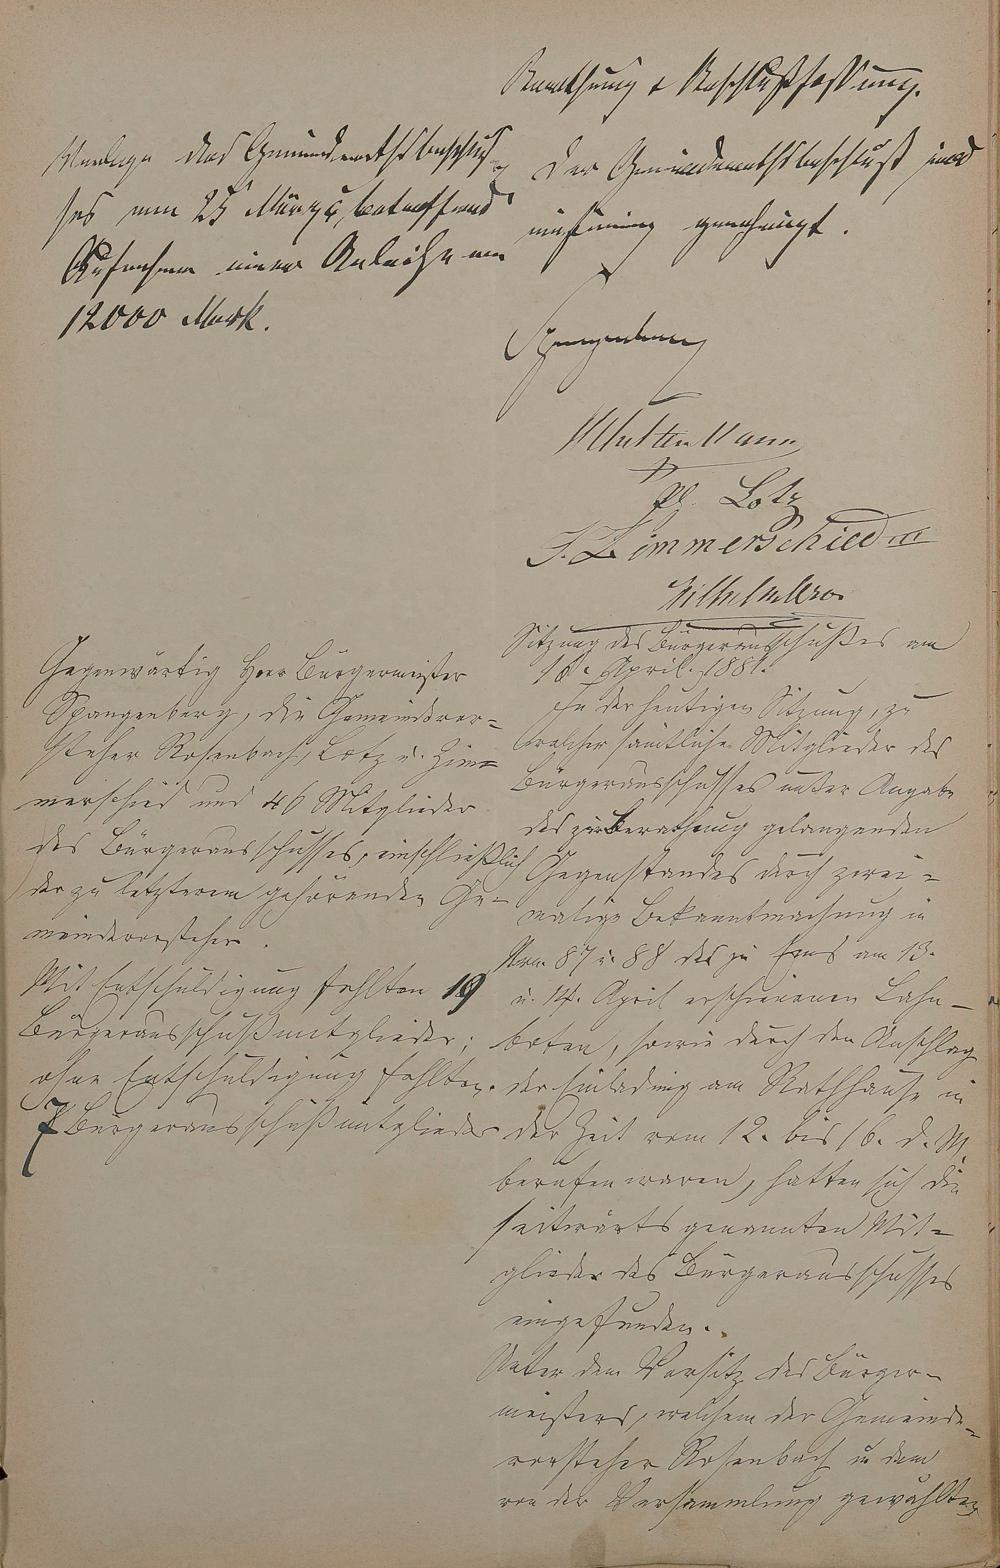 Berathung & Beschlußfassung.
Vorlage des Gemeinderathsbeschlus=
ses vom 25 März betreffend
Aufnahme einer Anleihe von
12000 Mark.
Der Gemeinderathsbeschluß wird
einstimmig genehmigt.
Spangenberg
Ph. Lotz
F. Zimmerschied III
Wilhelm
Gegenwärtig Herr Bürgermeister
Spangenberg, die Gemeindevor=
steher Rosenbach, Lotz u. Zim=
merschied und 46 Mitglieder
des Bürgerausschusses, einschließlich
der zu letzterem gehörenden Ge=
meindevorsteher.
Mit Entschuldigung fehlten 19
Bürgerausschußmitglieder;
ohne Entschuldigung fehlten
7 Bürgerausschußmitglieder
Sitzung des Bürgerausschußes am
18. April 1881.
In der heutigen Sitzung, zu
welcher sämtliche Mitglieder des
Bürgerausschusses unter Angabe
des zur Berathung gelangenden
Gegenstandes durch zwei=
malige Bekanntmachung in
Nro. 87 u. 88 des zu Ems am 13.
u. 14. April erschienenen Lahn=
boten, sowie durch den Anschlag
der Einladung am Rathhause in
der Zeit vom 12. bis 16. d. M.
berufen waren, hatten sich die
seitwärts genannten Mit=
glieder des Bürgerausschusses
eingefunden.
Unter dem Vorsitz des Bürger=
meisters, welchem der Gemeinde=
vorsteher Rosenbach u dem
von der Versammlung gewählten